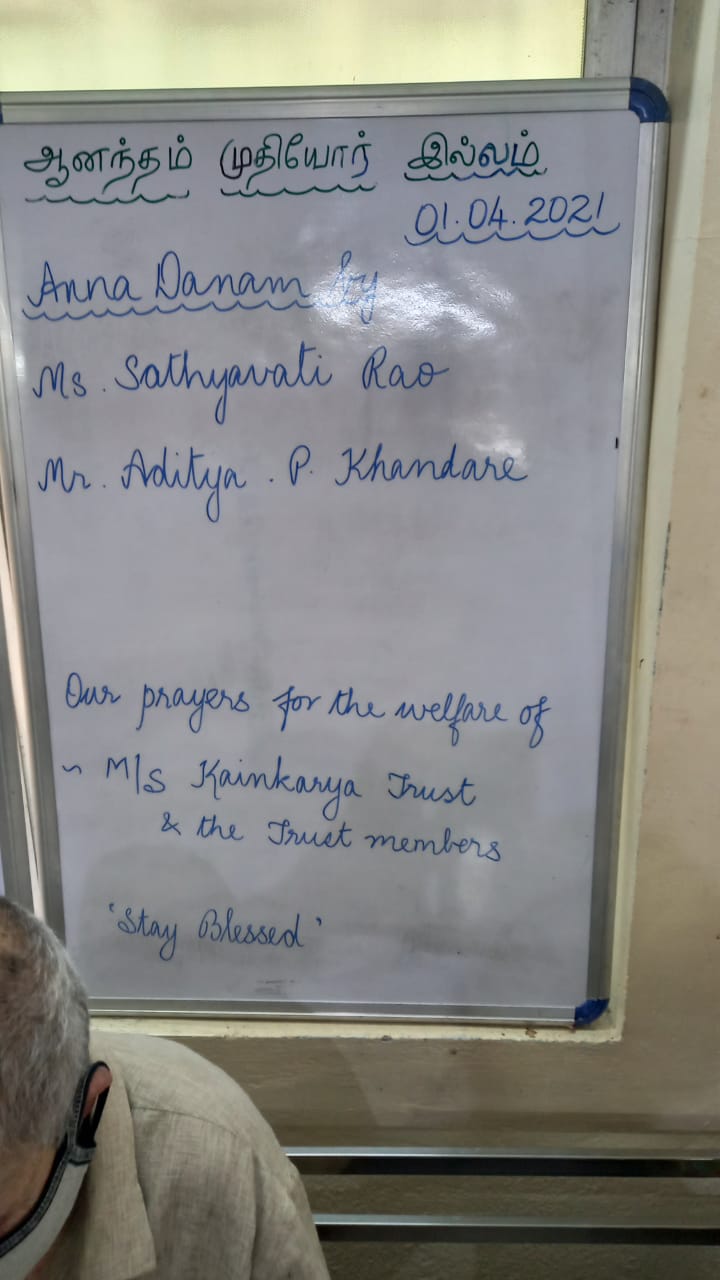 ஆனந்தம் முதியோர் இல்லம்
01.04.2021
Anna Danam by
Ms. Sathyavati Rao
Mr. Aditya . P. Khandare
Our prayers for the welfare of
~ M/s Kainkarya Trust
& the Trust members
'Stay Blessed'